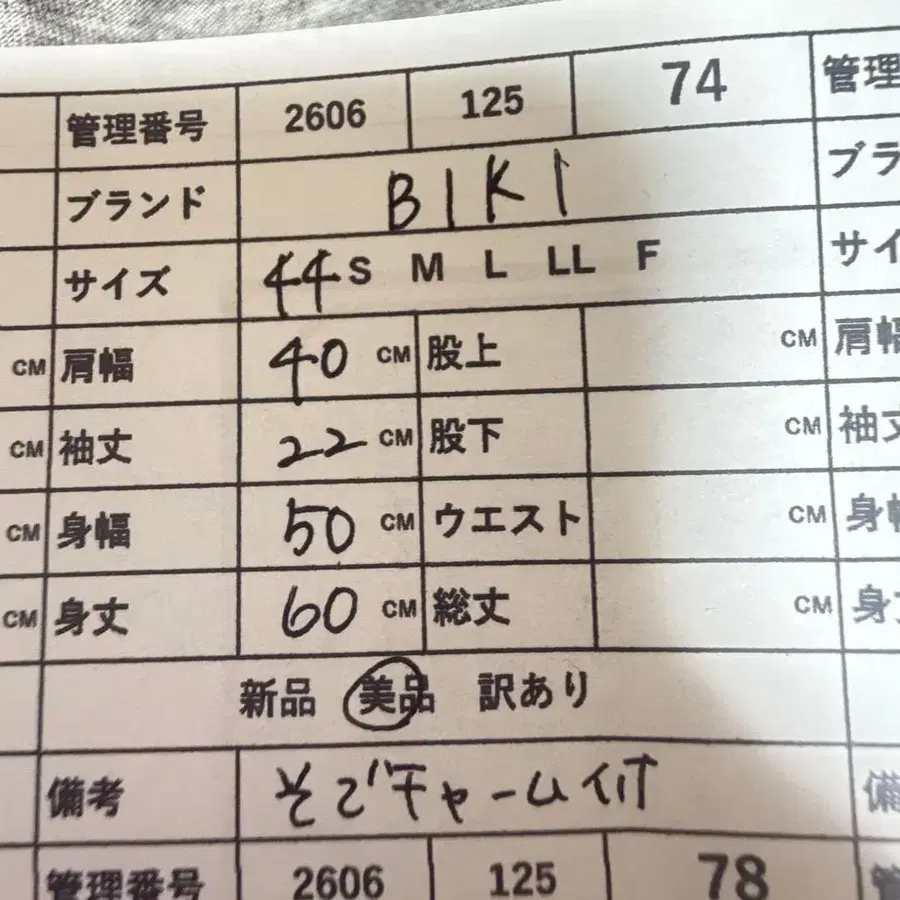 管理番号 2606 125 74 管理
ブランド BIKI ブラ
サイズ 44 S M L LL F サイ
CM 肩幅 40 CM 股上 CM 肩幅
CM 袖丈 22 CM 股下 CM 袖丈
CM 身幅 50 CM ウエスト CM 身幅
CM 身丈 60 CM 総丈 CM 身
新品 美品 訳あり
備考 そでチャーム付 備
管理番号 2606 125 78